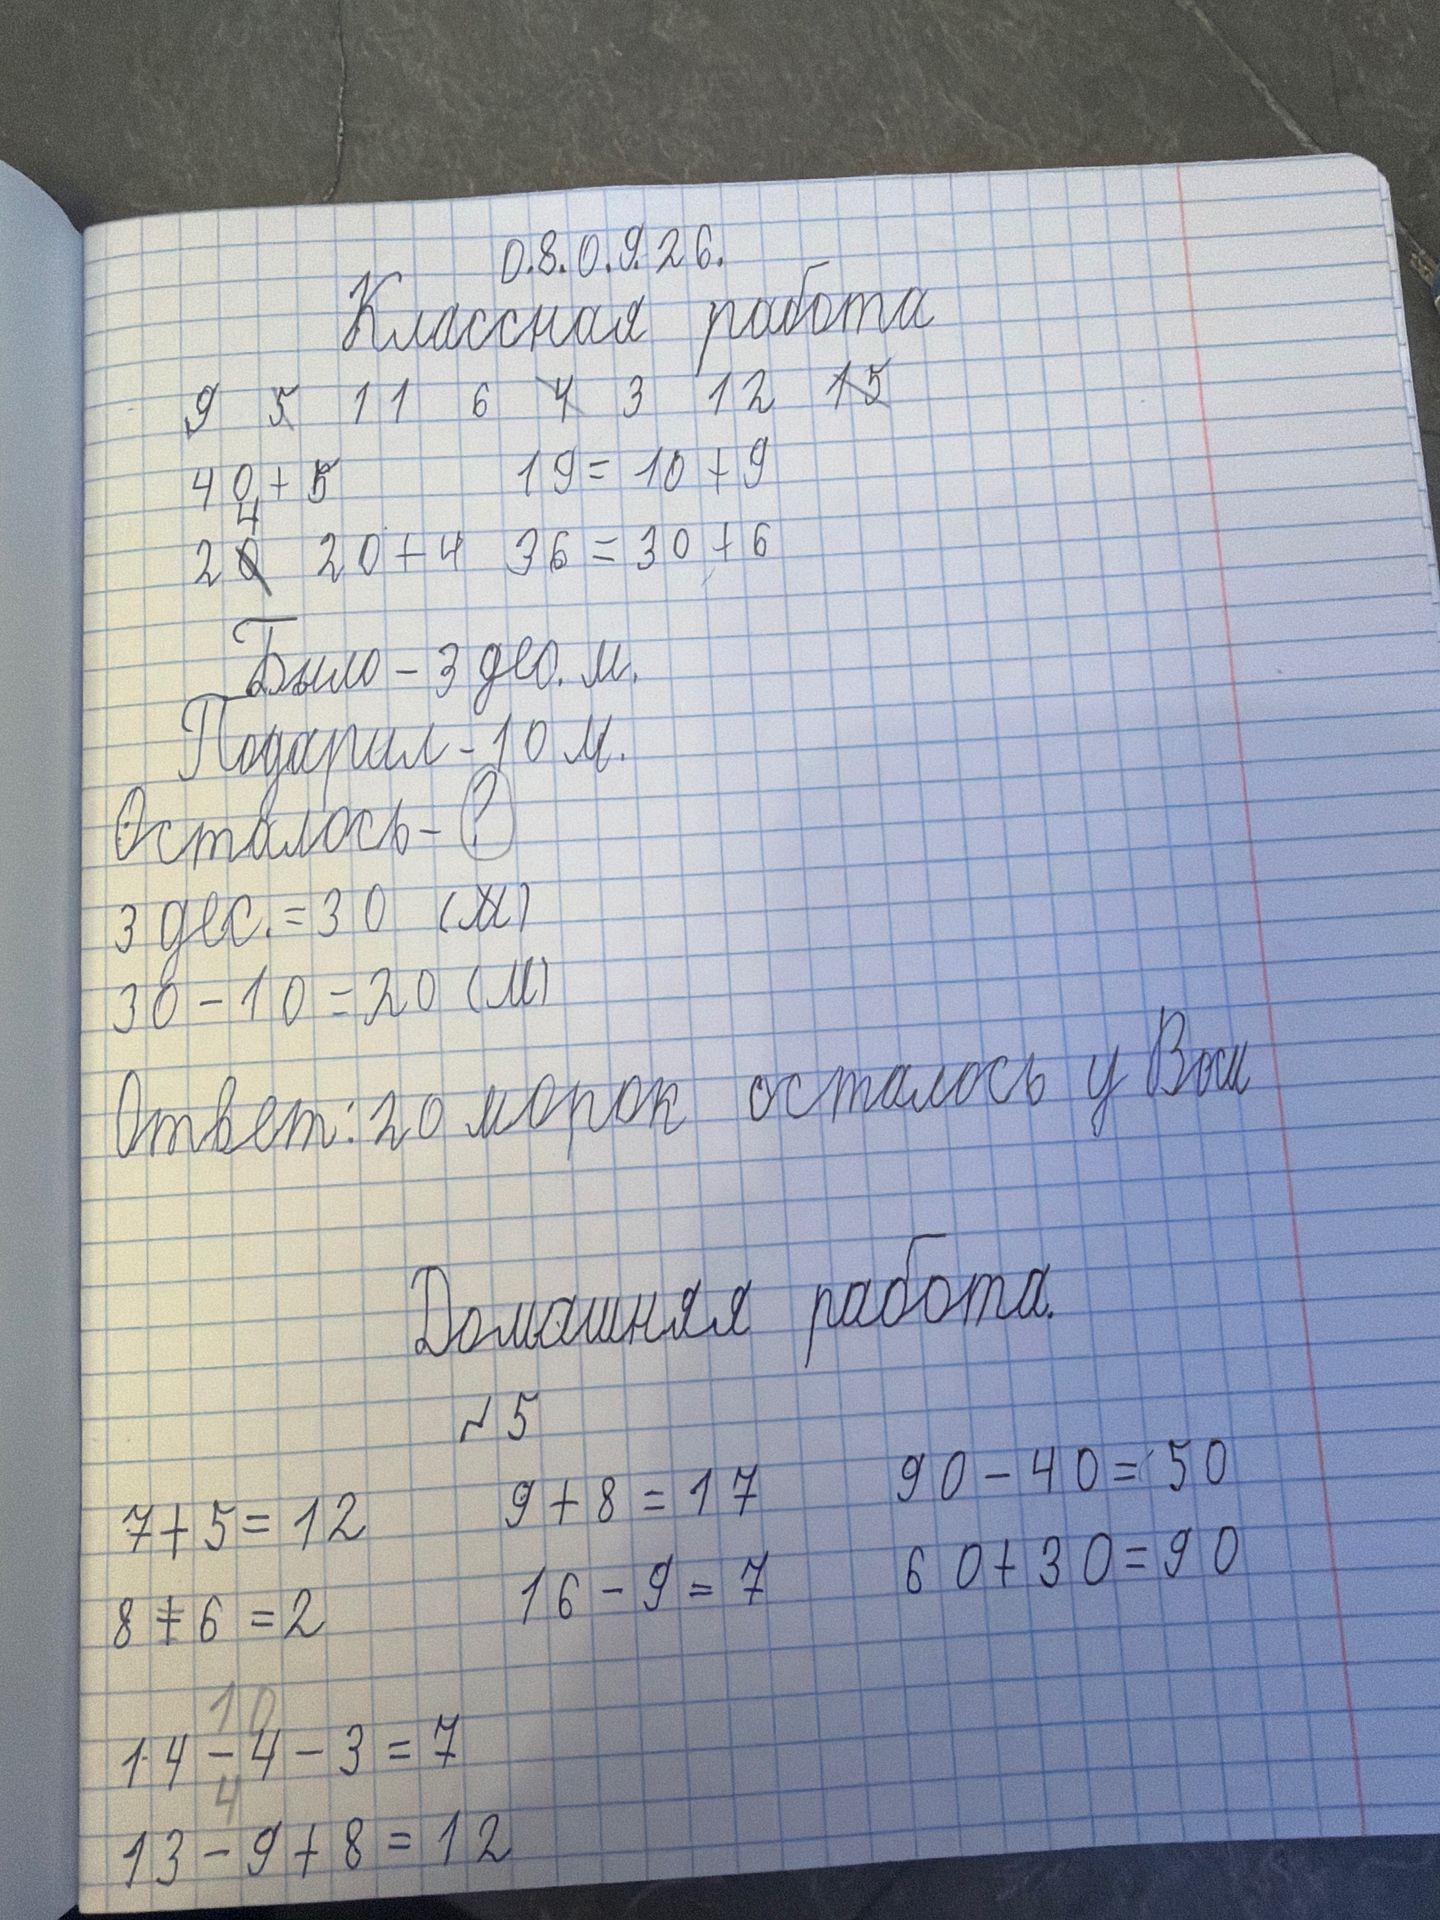 0.8.0.9.26.
Классная работа
9 5 11 6 4 3 12 15
40 + 5 19 = 10 + 9
4
20 20 + 4 36 = 30 + 6
Было - 3 дес. м.
Подарил - 10 м.
Осталось - ?
3 дес. = 30 (м)
30 - 10 = 20 (м)
Ответ: 20 морок осталось у
Домашняя работа.
№ 5
7 + 5 = 12 9 + 8 = 17 90 - 40 = 50
8 + 6 = 2 16 - 9 = 7 60 + 30 = 90
10
14 - 4 - 3 = 7
4
13 - 9 + 8 = 12